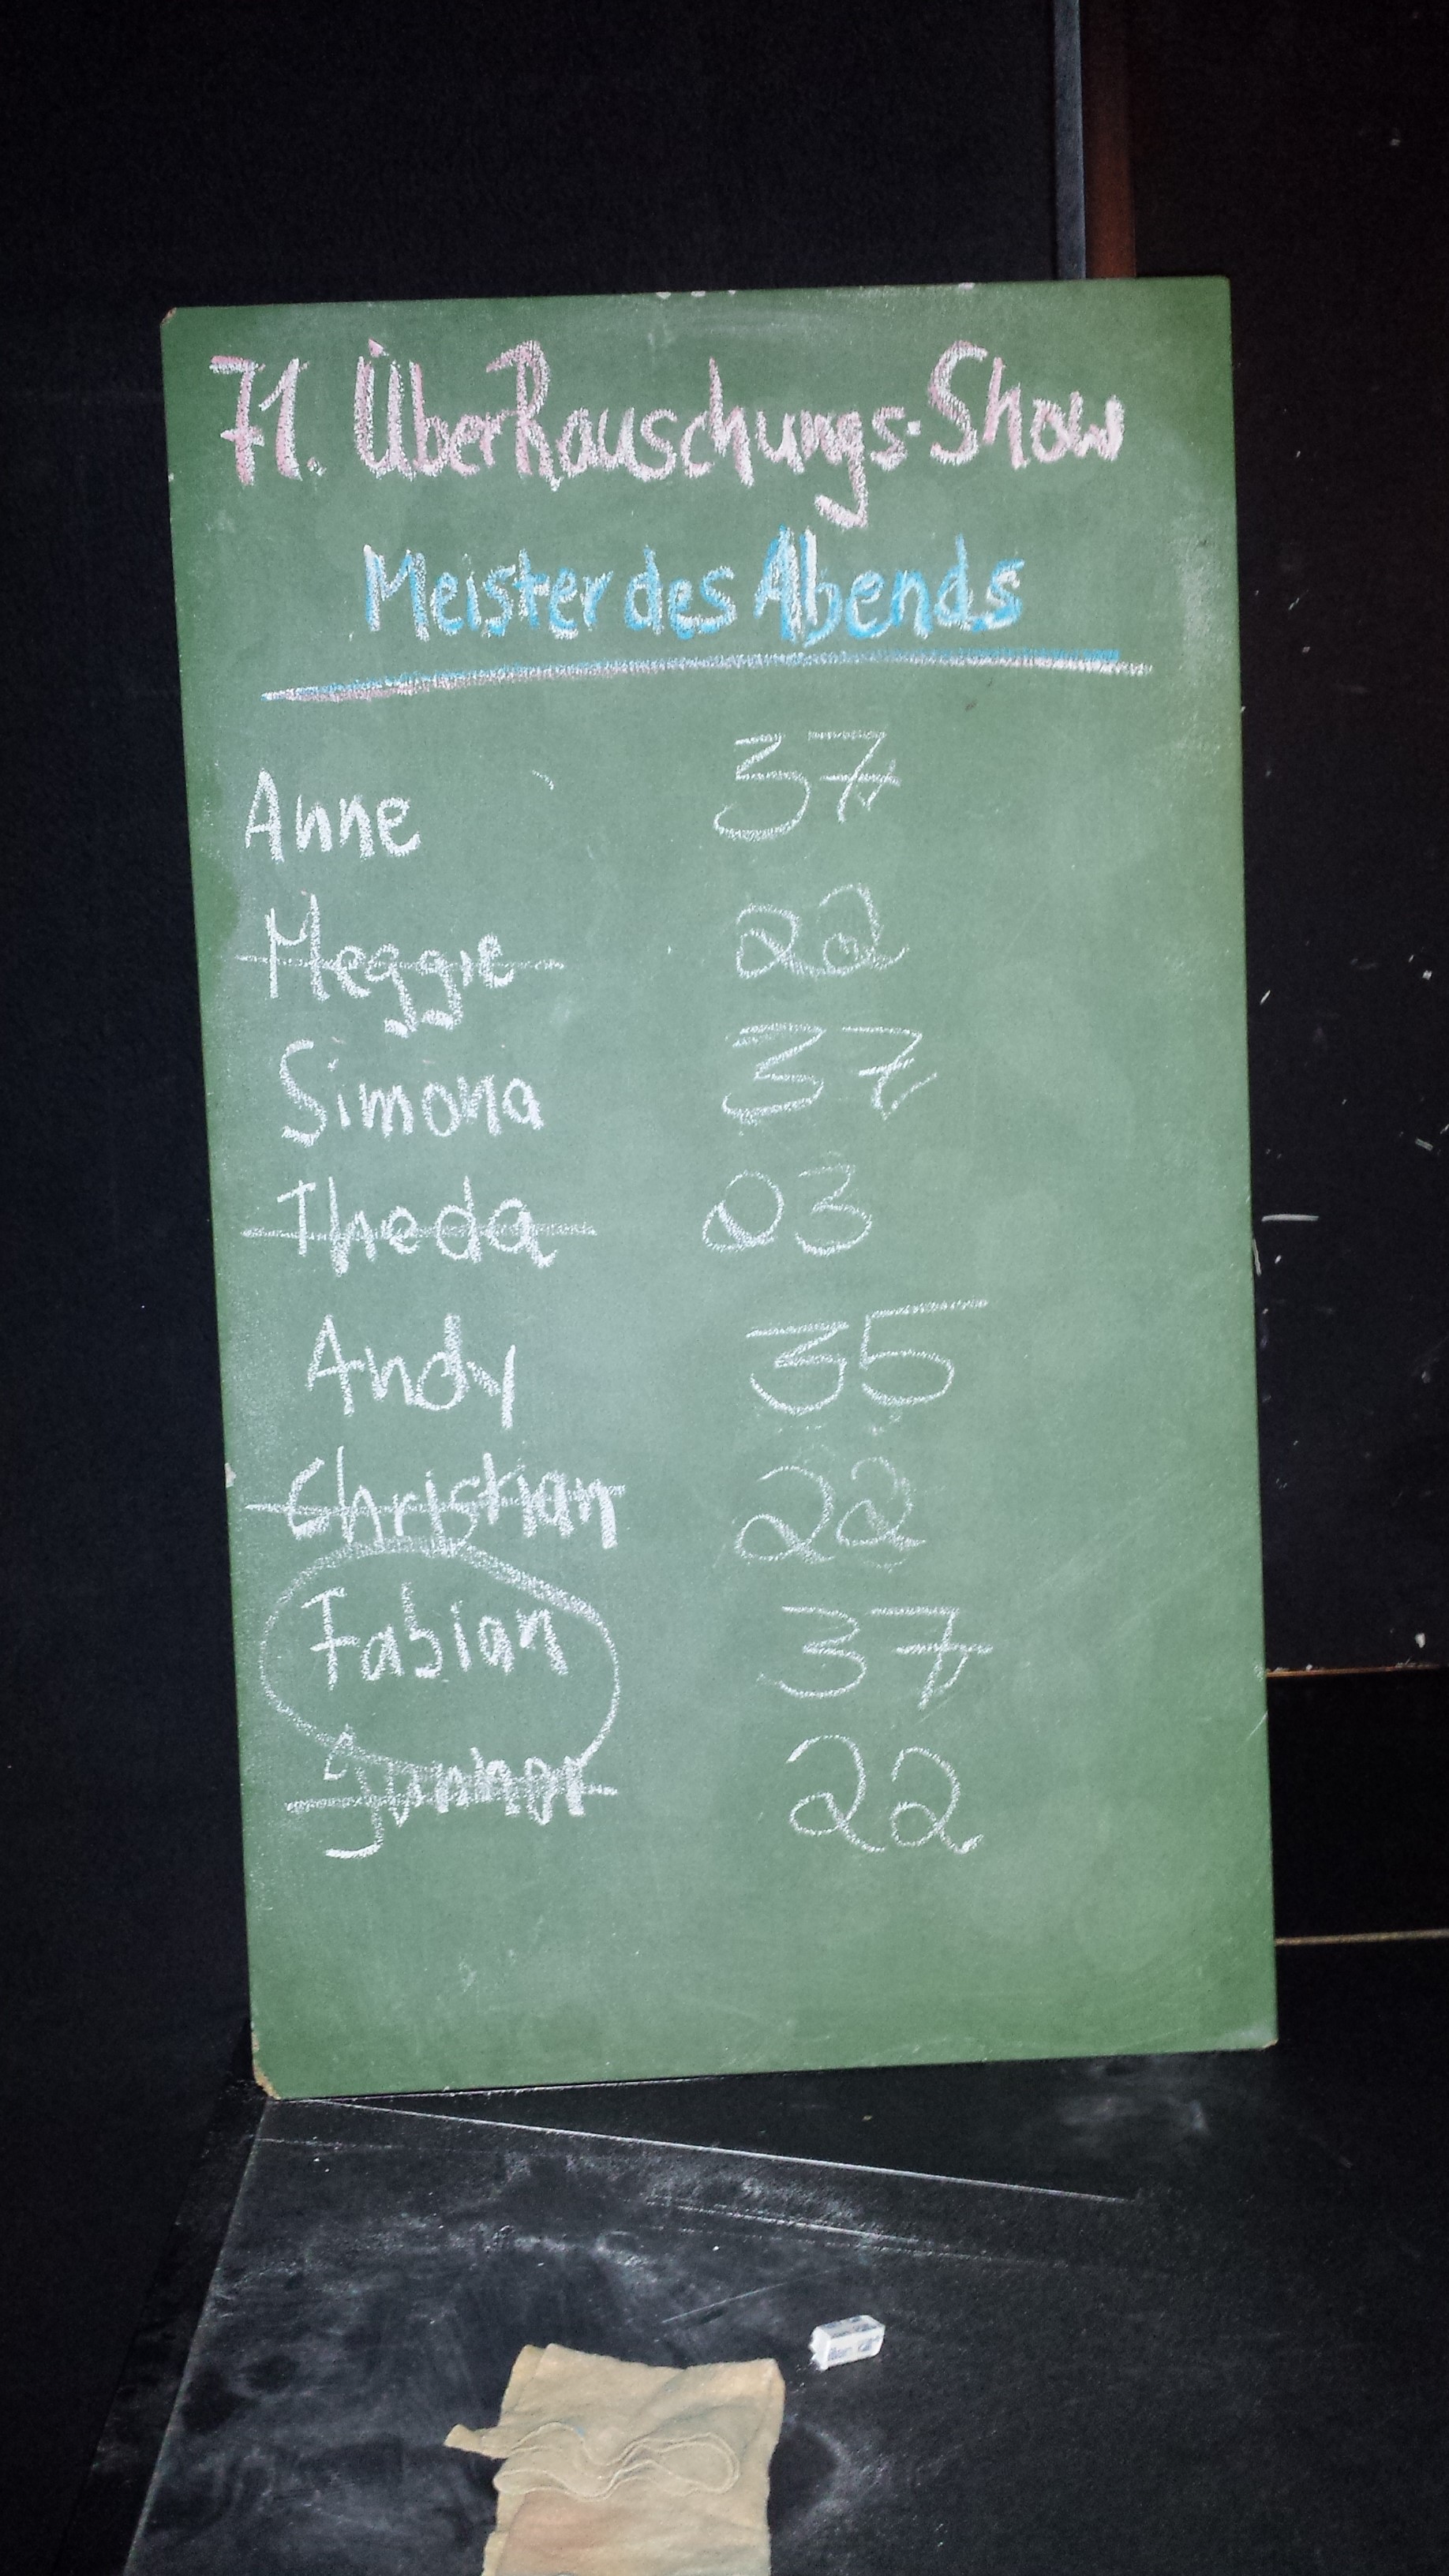 71. ÜberRauschungs-Show
Meister des Abends
Anne 37
Meggie 22
Simona 37
Theda 03
Andy 35
Christian 22
Fabian 37
Junior 22